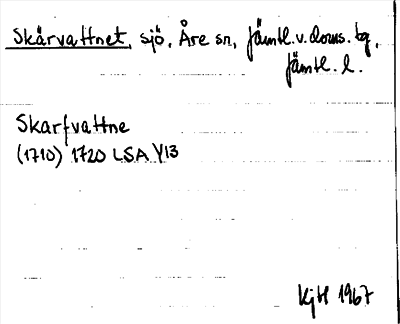 Skärvattnet, sjö, Åre sn, Jämtl.v.doms. tg,
Jämtl. l.
Skarfvattne
(1710) 1720 LSA Y13
KjH 1967